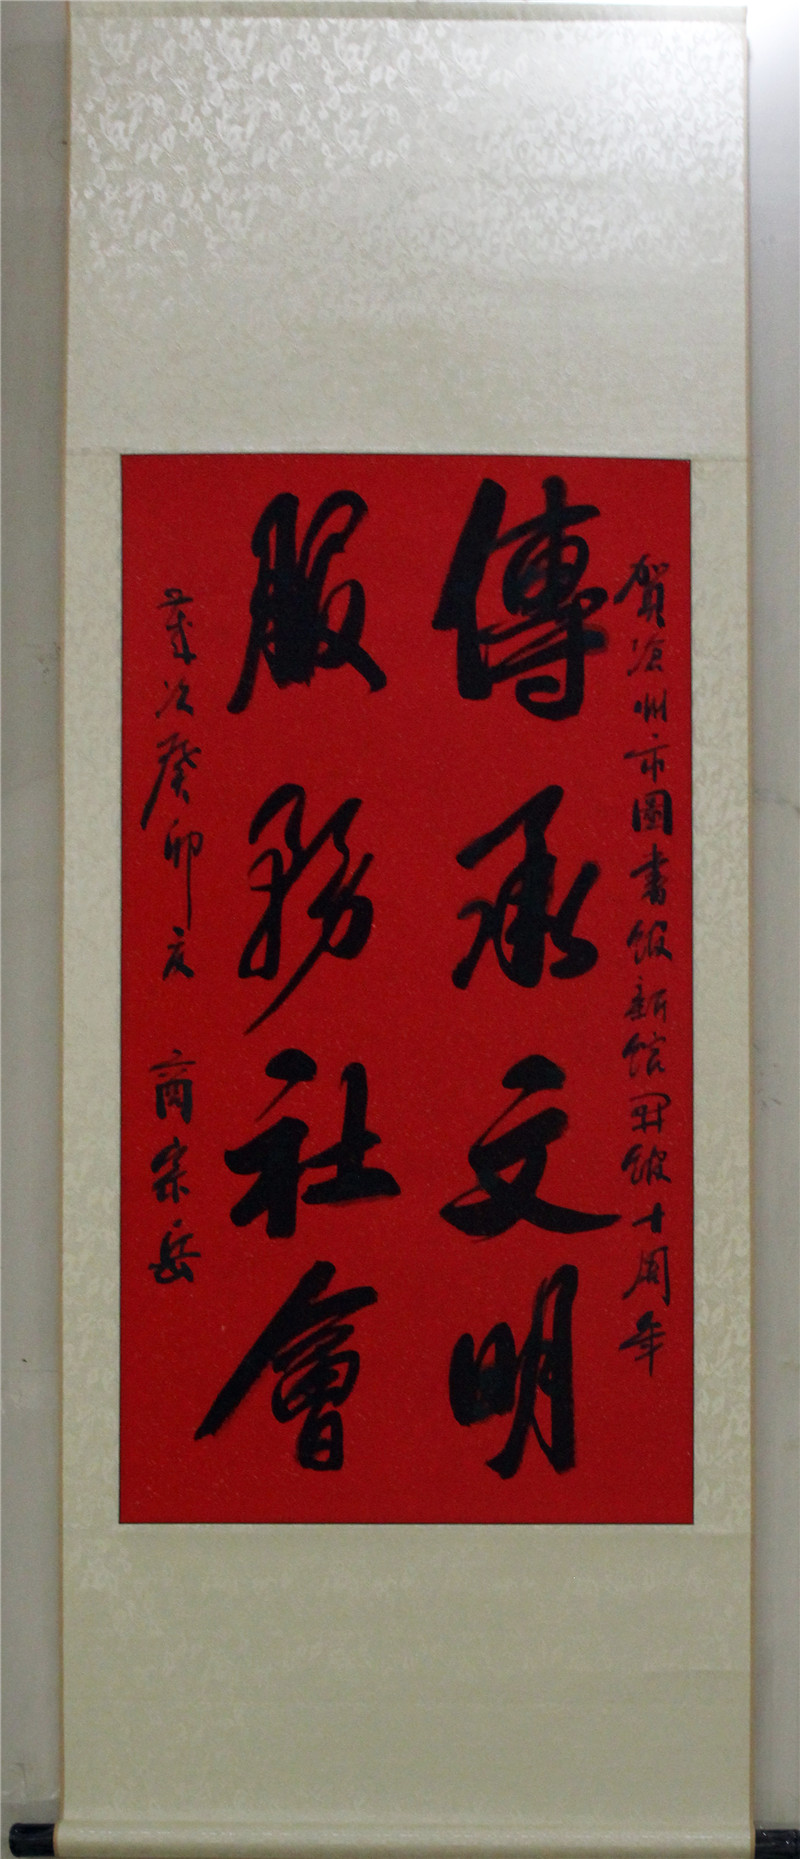 賀滄州市圖書館新館開館十周年
傳承文明
服務社會
歲次癸卯夏 商宗岳